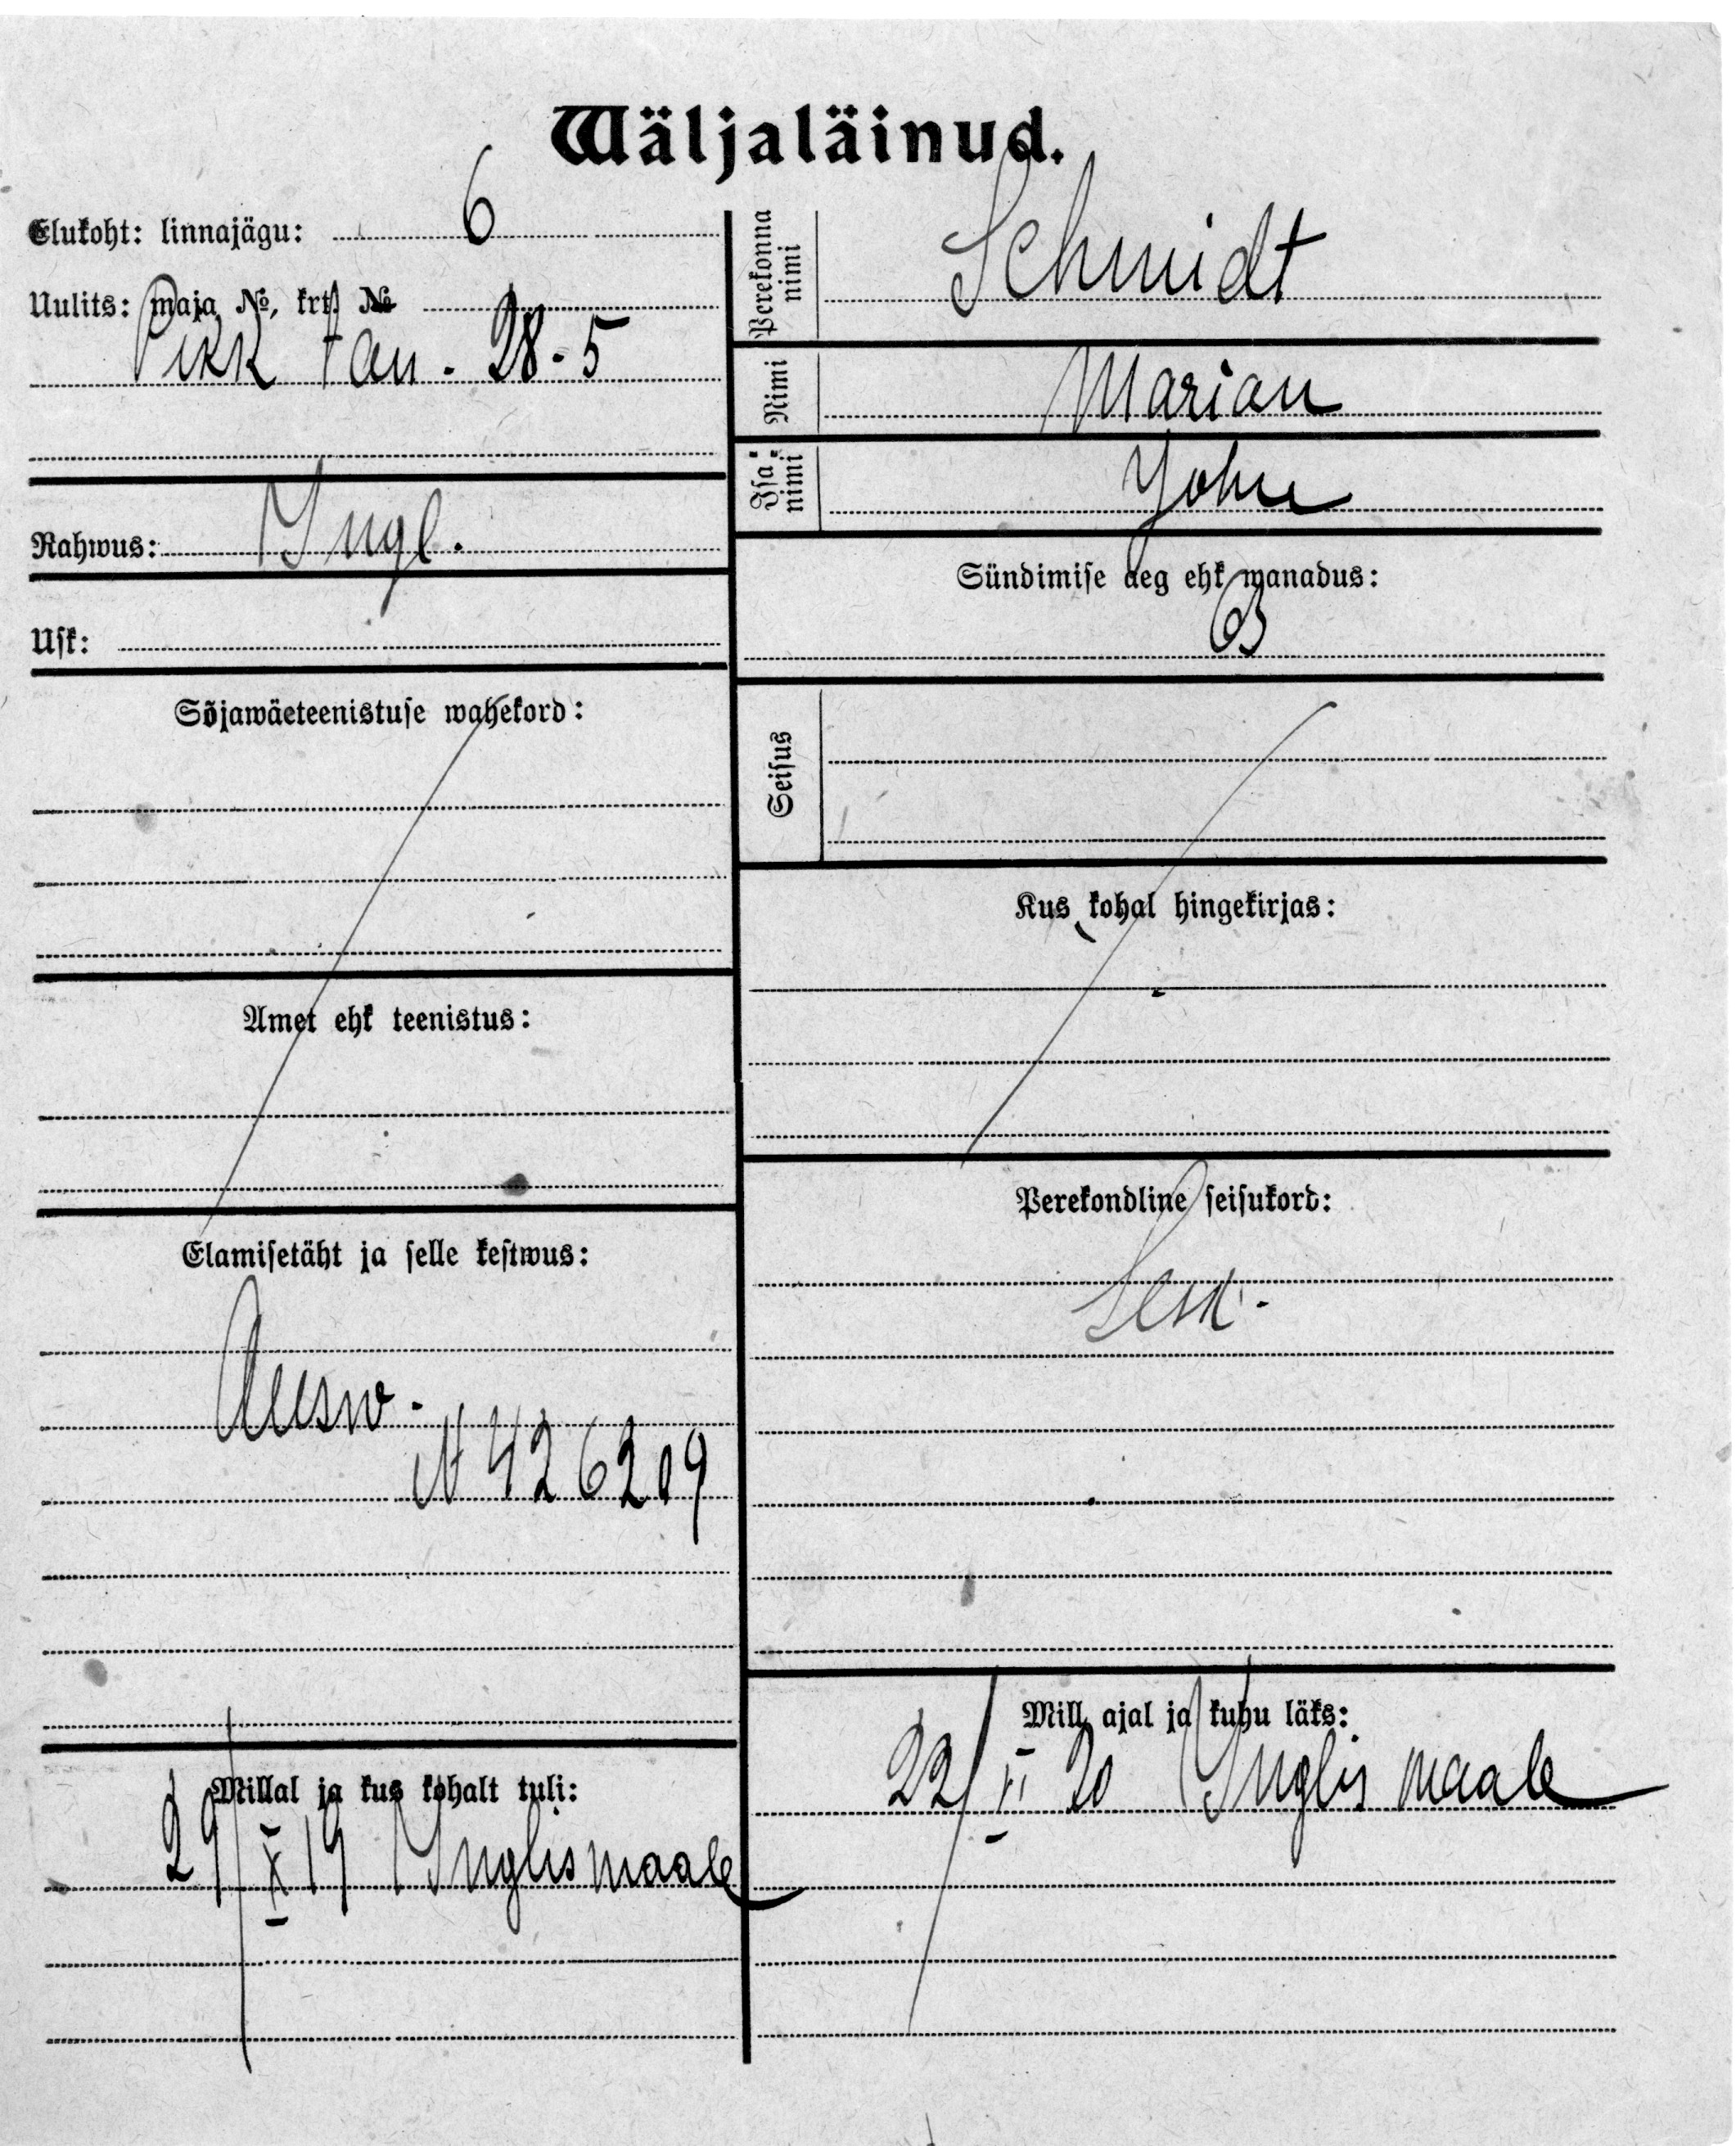 Wäljaläinud.
Elukoht: linnajägu: 6
Uulits: maja №, krt. №
Pikk tän. 28-5
Rahwus: Ingl.
Usk:
Sõjawäeteenistuse wahekord:
Amet ehk teenistus:
Elamisetäht ja selle kestwus:
N 426209
Millal ja kus kohalt tuli:
29/X 19 Inglismaale
Perekonna nimi
Schmidt
Nimi
Marian
Isa-nimi
John
Sündimise aeg ehk wanadus:
Seisus
Kus kohal hingekirjas:
Perekondline seisukord:
Lesk.
Mill ajal ja kuhu läks:
22/II 20 Inglismaale